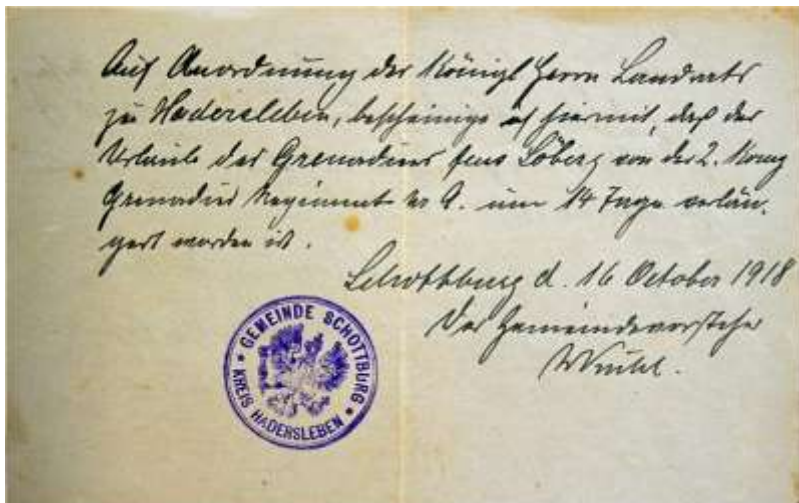 Auf Anordnung des Königl Herrn Landrats
zu Hadersleben, bescheinige ich hiermit, daß der
Urlaub des Grenadiers Jens Löberg von der 2. Komp
Grenadier Regiment Nr 9. um 14 Tage verlän-
gert worden ist.
Schottburg d. 16 October 1918
Der Gemeindevorsteher
GEMEINDE SCHOTTBURG
KREIS HADERSLEBEN